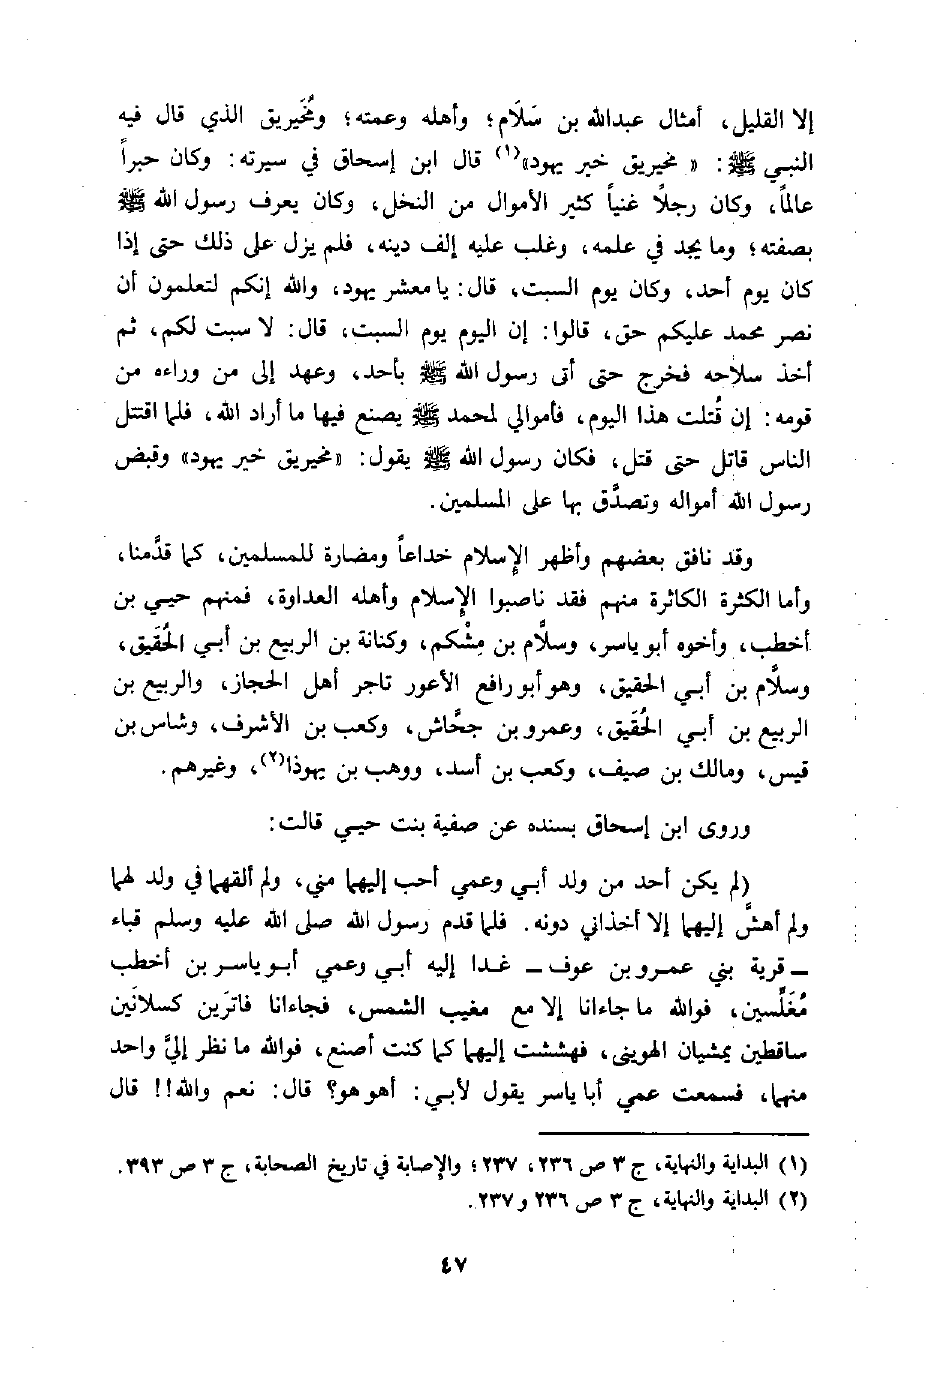 إلا القليل، أمثال عبدالله بن سَلَام؛ وأهله وعمته؛ ومُخَيريق الذي قال فيه
النبـي ﷺ: «مخيريق خير يهود»(١) قال ابن إسحاق في سيرته: وكان حبراً
عالماً، وكان رجلاً غنياً كثير الأموال من النخل، وكان يعرف رسول الله ﷺ
بصفته؛ وما يجد في علمه، وغلب عليه إلف دينه، فلم يزل على ذلك حتى إذا
كان يوم أحد، وكان يوم السبت، قال: يا معشر يهود، والله إنكم لتعلمون أن
نصر محمد عليكم حق، قالوا: إن اليوم يوم السبت، قال: لا سبت لكم، ثم
أخذ سلاحه فخرج حتى أتى رسول الله ﷺ بأحد، وعهد إلى من وراءه من
قومه: إن قُتلت هذا اليوم، فأموالي لمحمد ﷺ يصنع فيها ما أراد الله، فلما اقتتل
الناس قاتل حتى قتل، فكان رسول الله ﷺ يقول: «مخيريق خير يهود» وقبض
رسول الله أمواله وتصدَّق بها على المسلمين.
وقد نافق بعضهم وأظهر الإسلام خداعاً ومضارة للمسلمين، كما قدَّمنا،
وأما الكثرة الكاثرة منهم فقد ناصبوا الإسلام وأهله العداوة، فمنهم حيـي بن
أخطب، وأخوه أبو ياسر، وسلَّام بن مِشْكم، وكنانة بن الربيع بن أبي الحُقَيق،
وسلَّام بن أبـي الحقيق، وهو أبو رافع الأعور تاجر أهل الحجاز، والربيع بن
الربيع بن أبـي الحُقَيق، وعمرو بن جحَّاش، وكعب بن الأشرف، وشاس بن
قيس، ومالك بن صيف، وكعب بن أسد، ووهب بن يهوذا(٢)، وغيرهم.
وروى ابن إسحاق بسنده عن صفية بنت حيـي قالت:
(لم يكن أحد من ولد أبـي وعمي أحب إليهما مني، ولم ألقهما في ولد لهما
ولم أهشَّ إليهما إلا أخذاني دونه. فلما قدم رسول الله صلى الله عليه وسلم قباء
ـ قرية بني عمـرو بن عوف ـ غدا إليه أبـي وعمي أبـو ياسـر بن أخطب
مُغَلِّسين، فوالله ما جاءانا إلا مع مغيب الشمس، فجاءانا فاتَرين كسلانَين
ساقطين يمشيان الهوينى، فهششت إليهما كما كنت أصنع، فوالله ما نظر إليَّ واحد
منهما، فسمعت عمي أبا ياسر يقول لأبـي: أهو هو؟ قال: نعم والله!! قال
(١) البداية والنهاية، ج ٣ ص ٢٣٦، ٢٣٧؛ والإصابة في تاريخ الصحابة، ج ٣ ص ٣٩٣.
(٢) البداية والنهاية، ج ٣ ص ٢٣٦ و ٢٣٧.
٤٧